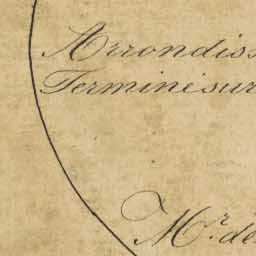 Arrondiss
Terminé sur
Mr. de